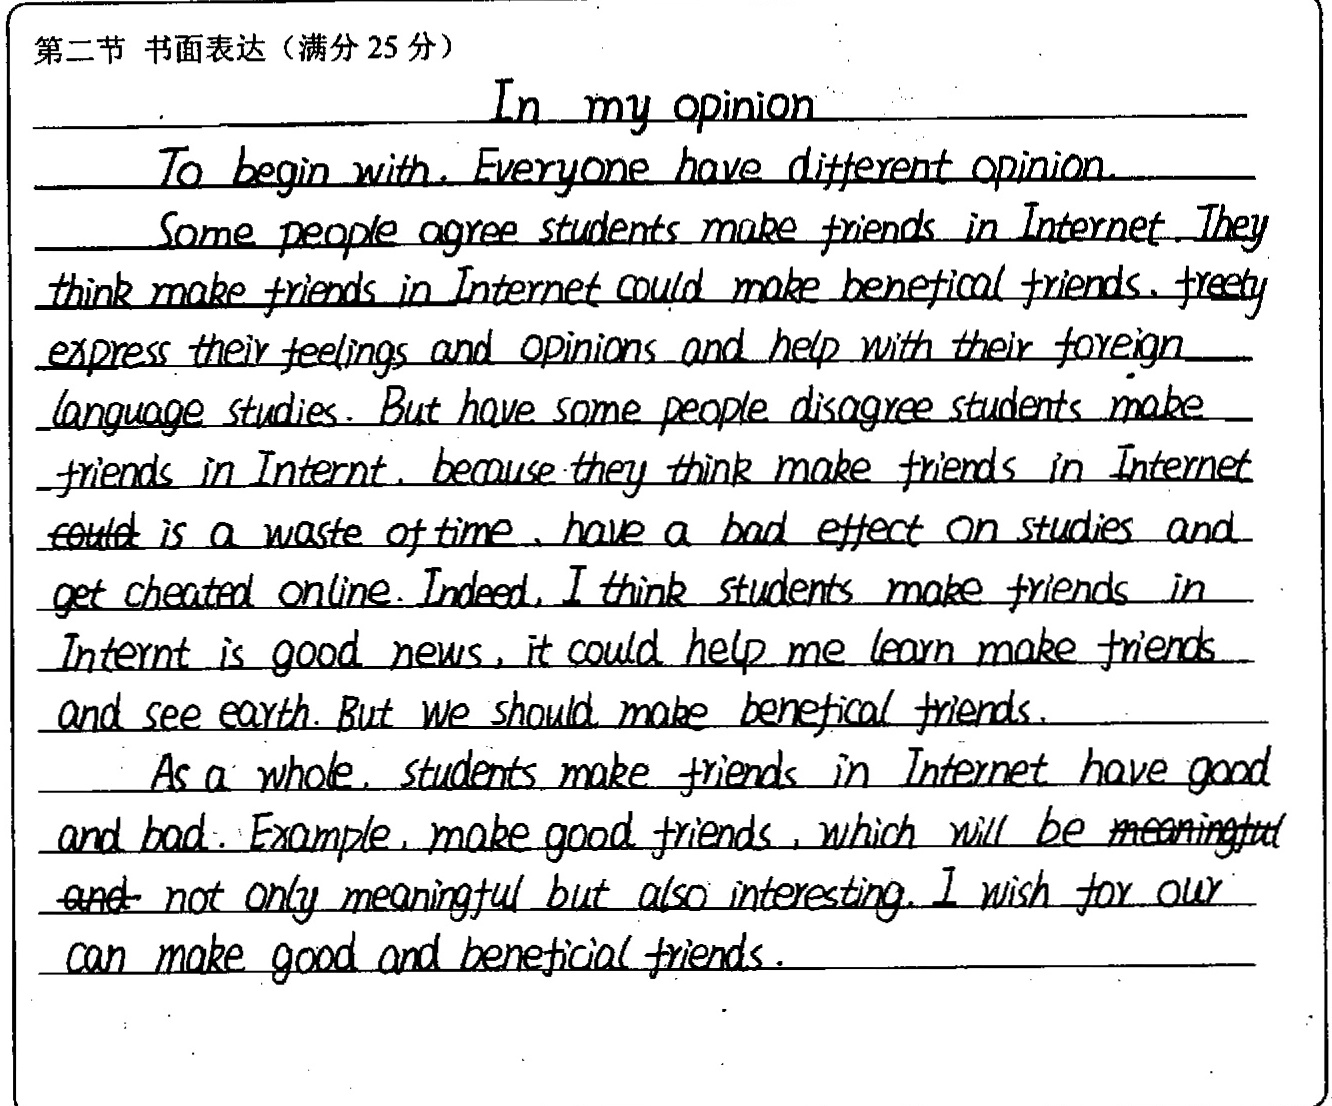 第二节 书面表达（满分 25 分）
In my opinion
To begin with. Everyone have different opinion.
Some people agree students make friends in Internet. They
think make friends in Internet could make benefical friends. freety
express their feelings and opinions and help with their foreign
language studies. But have some people disagree students make
friends in Internt. because they think make friends in Internet
could is a waste of time, have a bad effect on studies and
get cheated online. Indeed, I think students make friends in
Internt is good news, it could help me learn make friends
and see earth. But we should make benefical friends.
As a whole, students make friends in Internet have good
and bad. Example, make good friends, which will be meaningful
and not only meaningful but also interesting. I wish for our
can make good and beneficial friends.